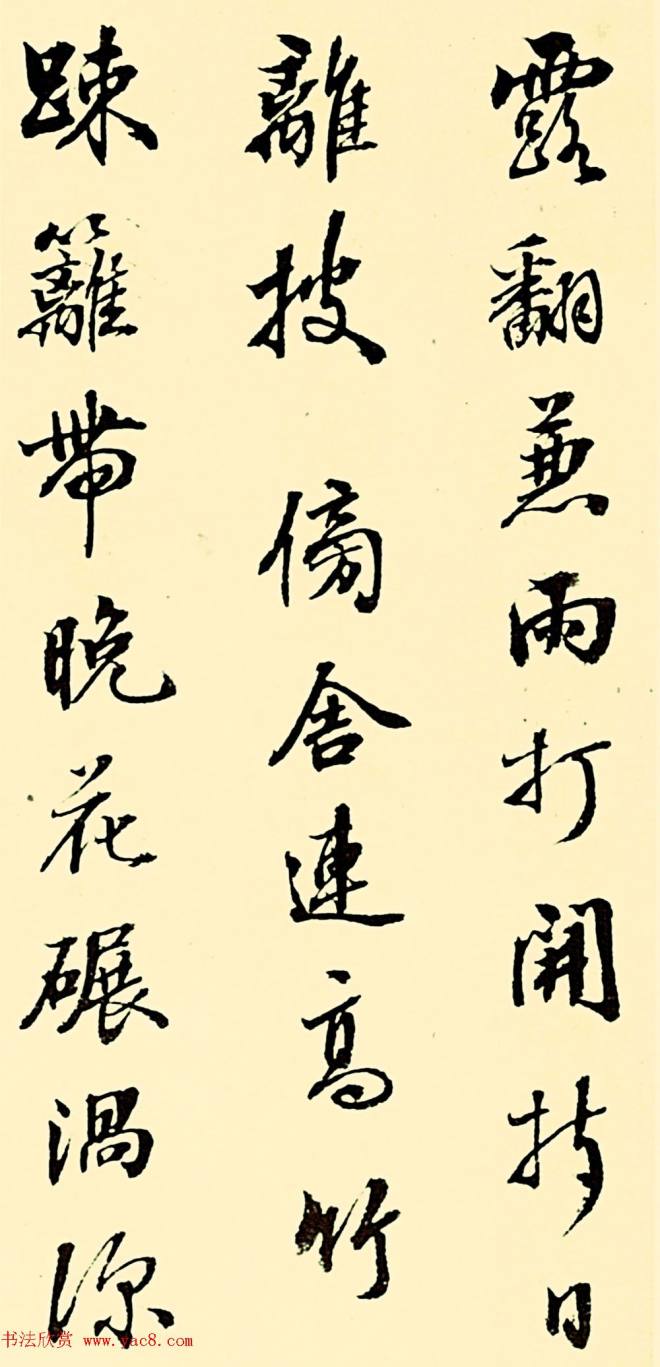 露翻兼雨打開拆日
離披 傍舍連高竹
踈籬帶晚花碾渦深
书法欣赏 www.yac8.com